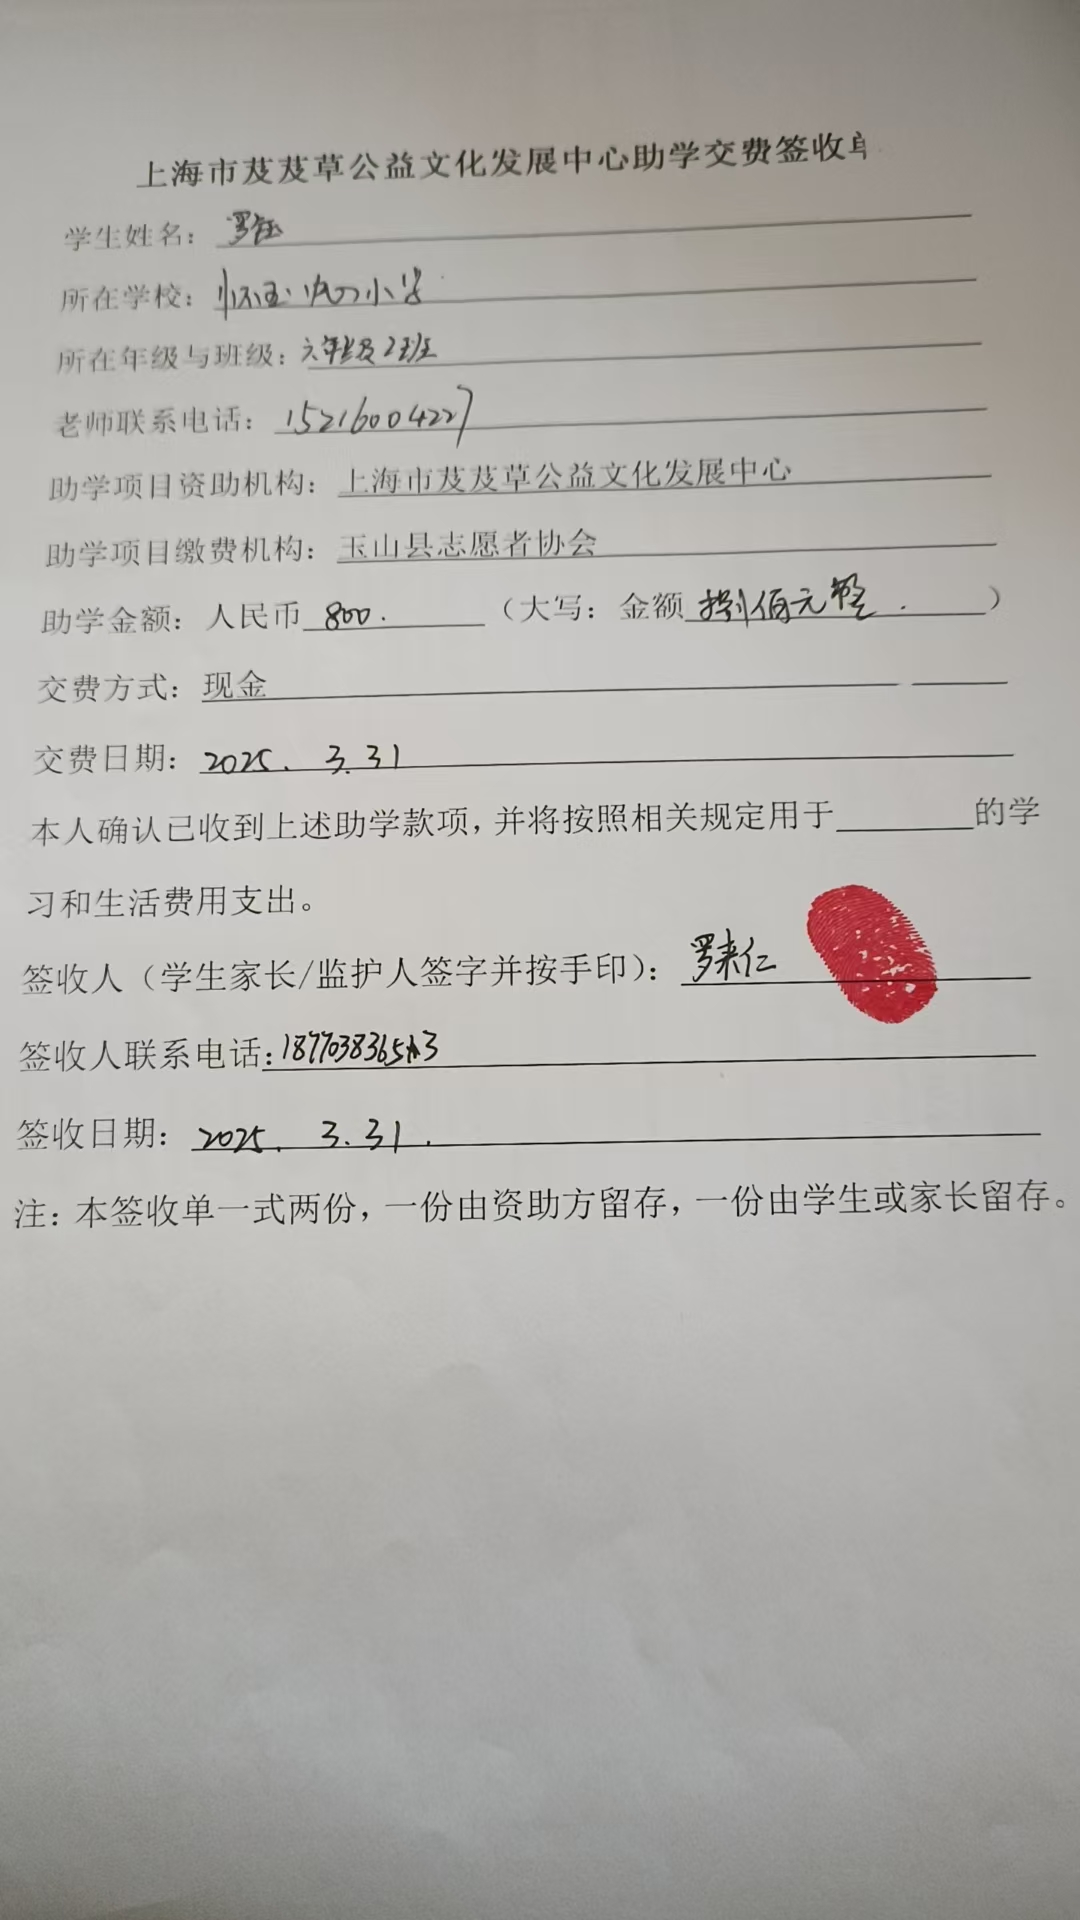 上海市芨芨草公益文化发展中心助学交费签收单
学生姓名：罗钰
所在学校：怀玉 小学
所在年级与班级：六年级2班
老师联系电话：15216004227
助学项目资助机构：上海市芨芨草公益文化发展中心
助学项目缴费机构：玉山县志愿者协会
助学金额：人民币 800. （大写：金额 捌佰元整. ）
交费方式：现金
交费日期：2025. 3.31
本人确认已收到上述助学款项，并将按照相关规定用于________的学
习和生活费用支出。
签收人（学生家长/监护人签字并按手印）：罗来仁
签收人联系电话：
签收日期：2025. 3.31.
注：本签收单一式两份，一份由资助方留存，一份由学生或家长留存。